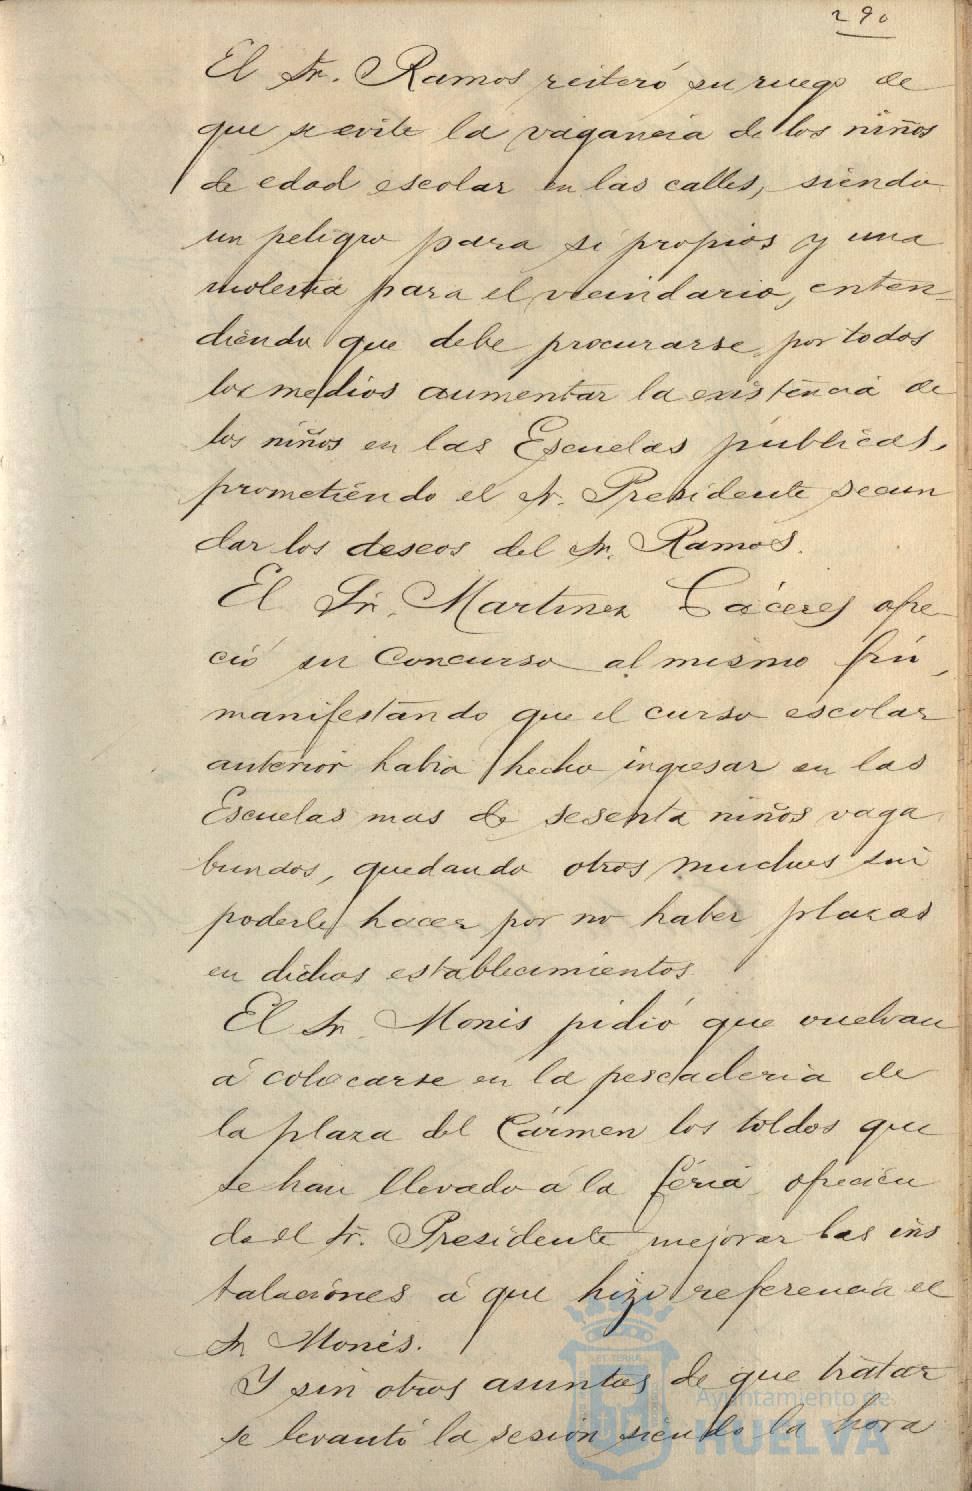 290
El Sr. Ramos reiteró su ruego de
que se evite la vagancia de los niños
de edad escolar en las calles, siendo
un peligro para si propios y una
molestia para el vecindario, enten-
diendo que debe procurarse por todos
los medios aumentar la existencia de
los niños en las Escuelas públicas,
prometiendo el Sr. Presidente secun
dar los deseos del Sr. Ramos.
El Sr. Martinez Cáceres ofre-
ció su concurso al mismo fin,
manifestando que el curso escolar
anterior habia hecho ingresar en las
Escuelas mas de sesenta niños vaga
bundos, quedando otros muchos sin
poderle hacer por no haber plazas
en dichos establecimientos.
El Sr. Monis pidió que vuelvan
á colocarse en la pescaderia de
la plaza del Cármen los toldos que
se han llevado á la féria, ofrecien
do el Sr. Presidente mejorar las ins
talaciones á que hizo referencia el
Sr Monis.
Y sin otros asuntos de que tratar
se levantó la sesion siendo la hora
Ayuntamiento de
HUELVA